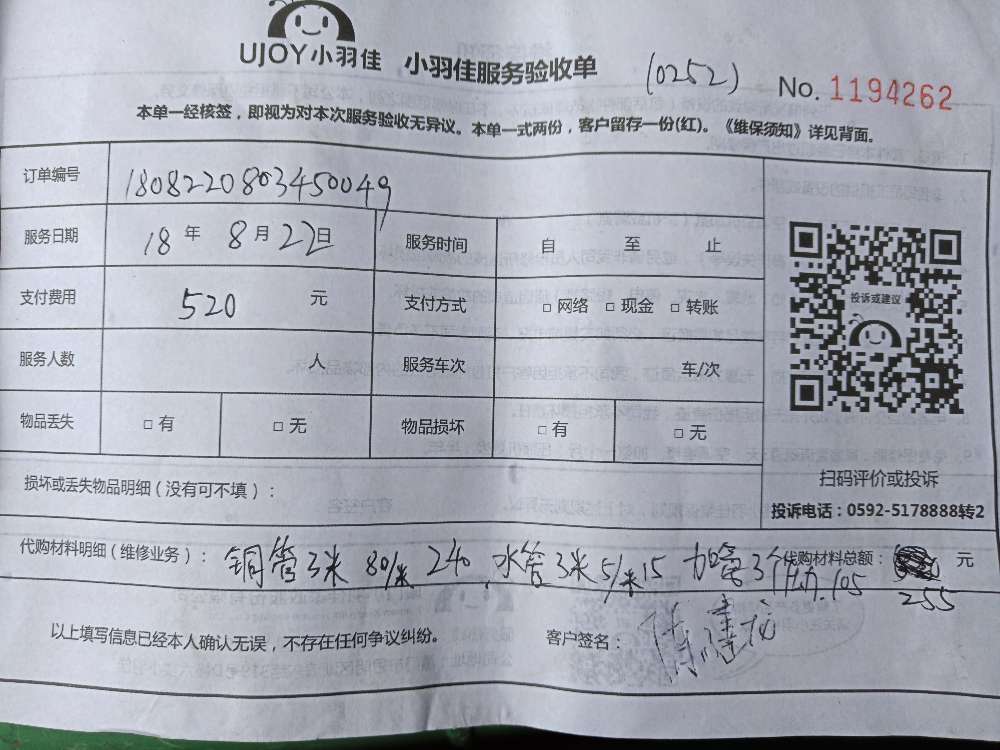 UJOY小羽佳 小羽佳服务验收单 (0252) No. 1194262
本单一经核签，即视为对本次服务验收无异议。本单一式两份，客户留存一份(红)。《维保须知》详见背面。
订单编号 180822080345004​9
服务日期 18 年 8 月 22 日 服务时间 自 至 止
支付费用 520 元 支付方式 □ 网络 □ 现金 □ 转账
投诉或建议
服务人数 人 服务车次 车/次
物品丢失 □ 有 □ 无 物品损坏 □ 有 □ 无
扫码评价或投诉
损坏或丢失物品明细（没有可不填）：
投诉电话：0592-5178888转2
代购材料明细（维修业务）： 铜管3米 80/米 240 水管3米 5/米 15 加 3个 105 代购材料总额： 元
255
以上填写信息已经本人确认无误，不存在任何争议纠纷。 客户签名：